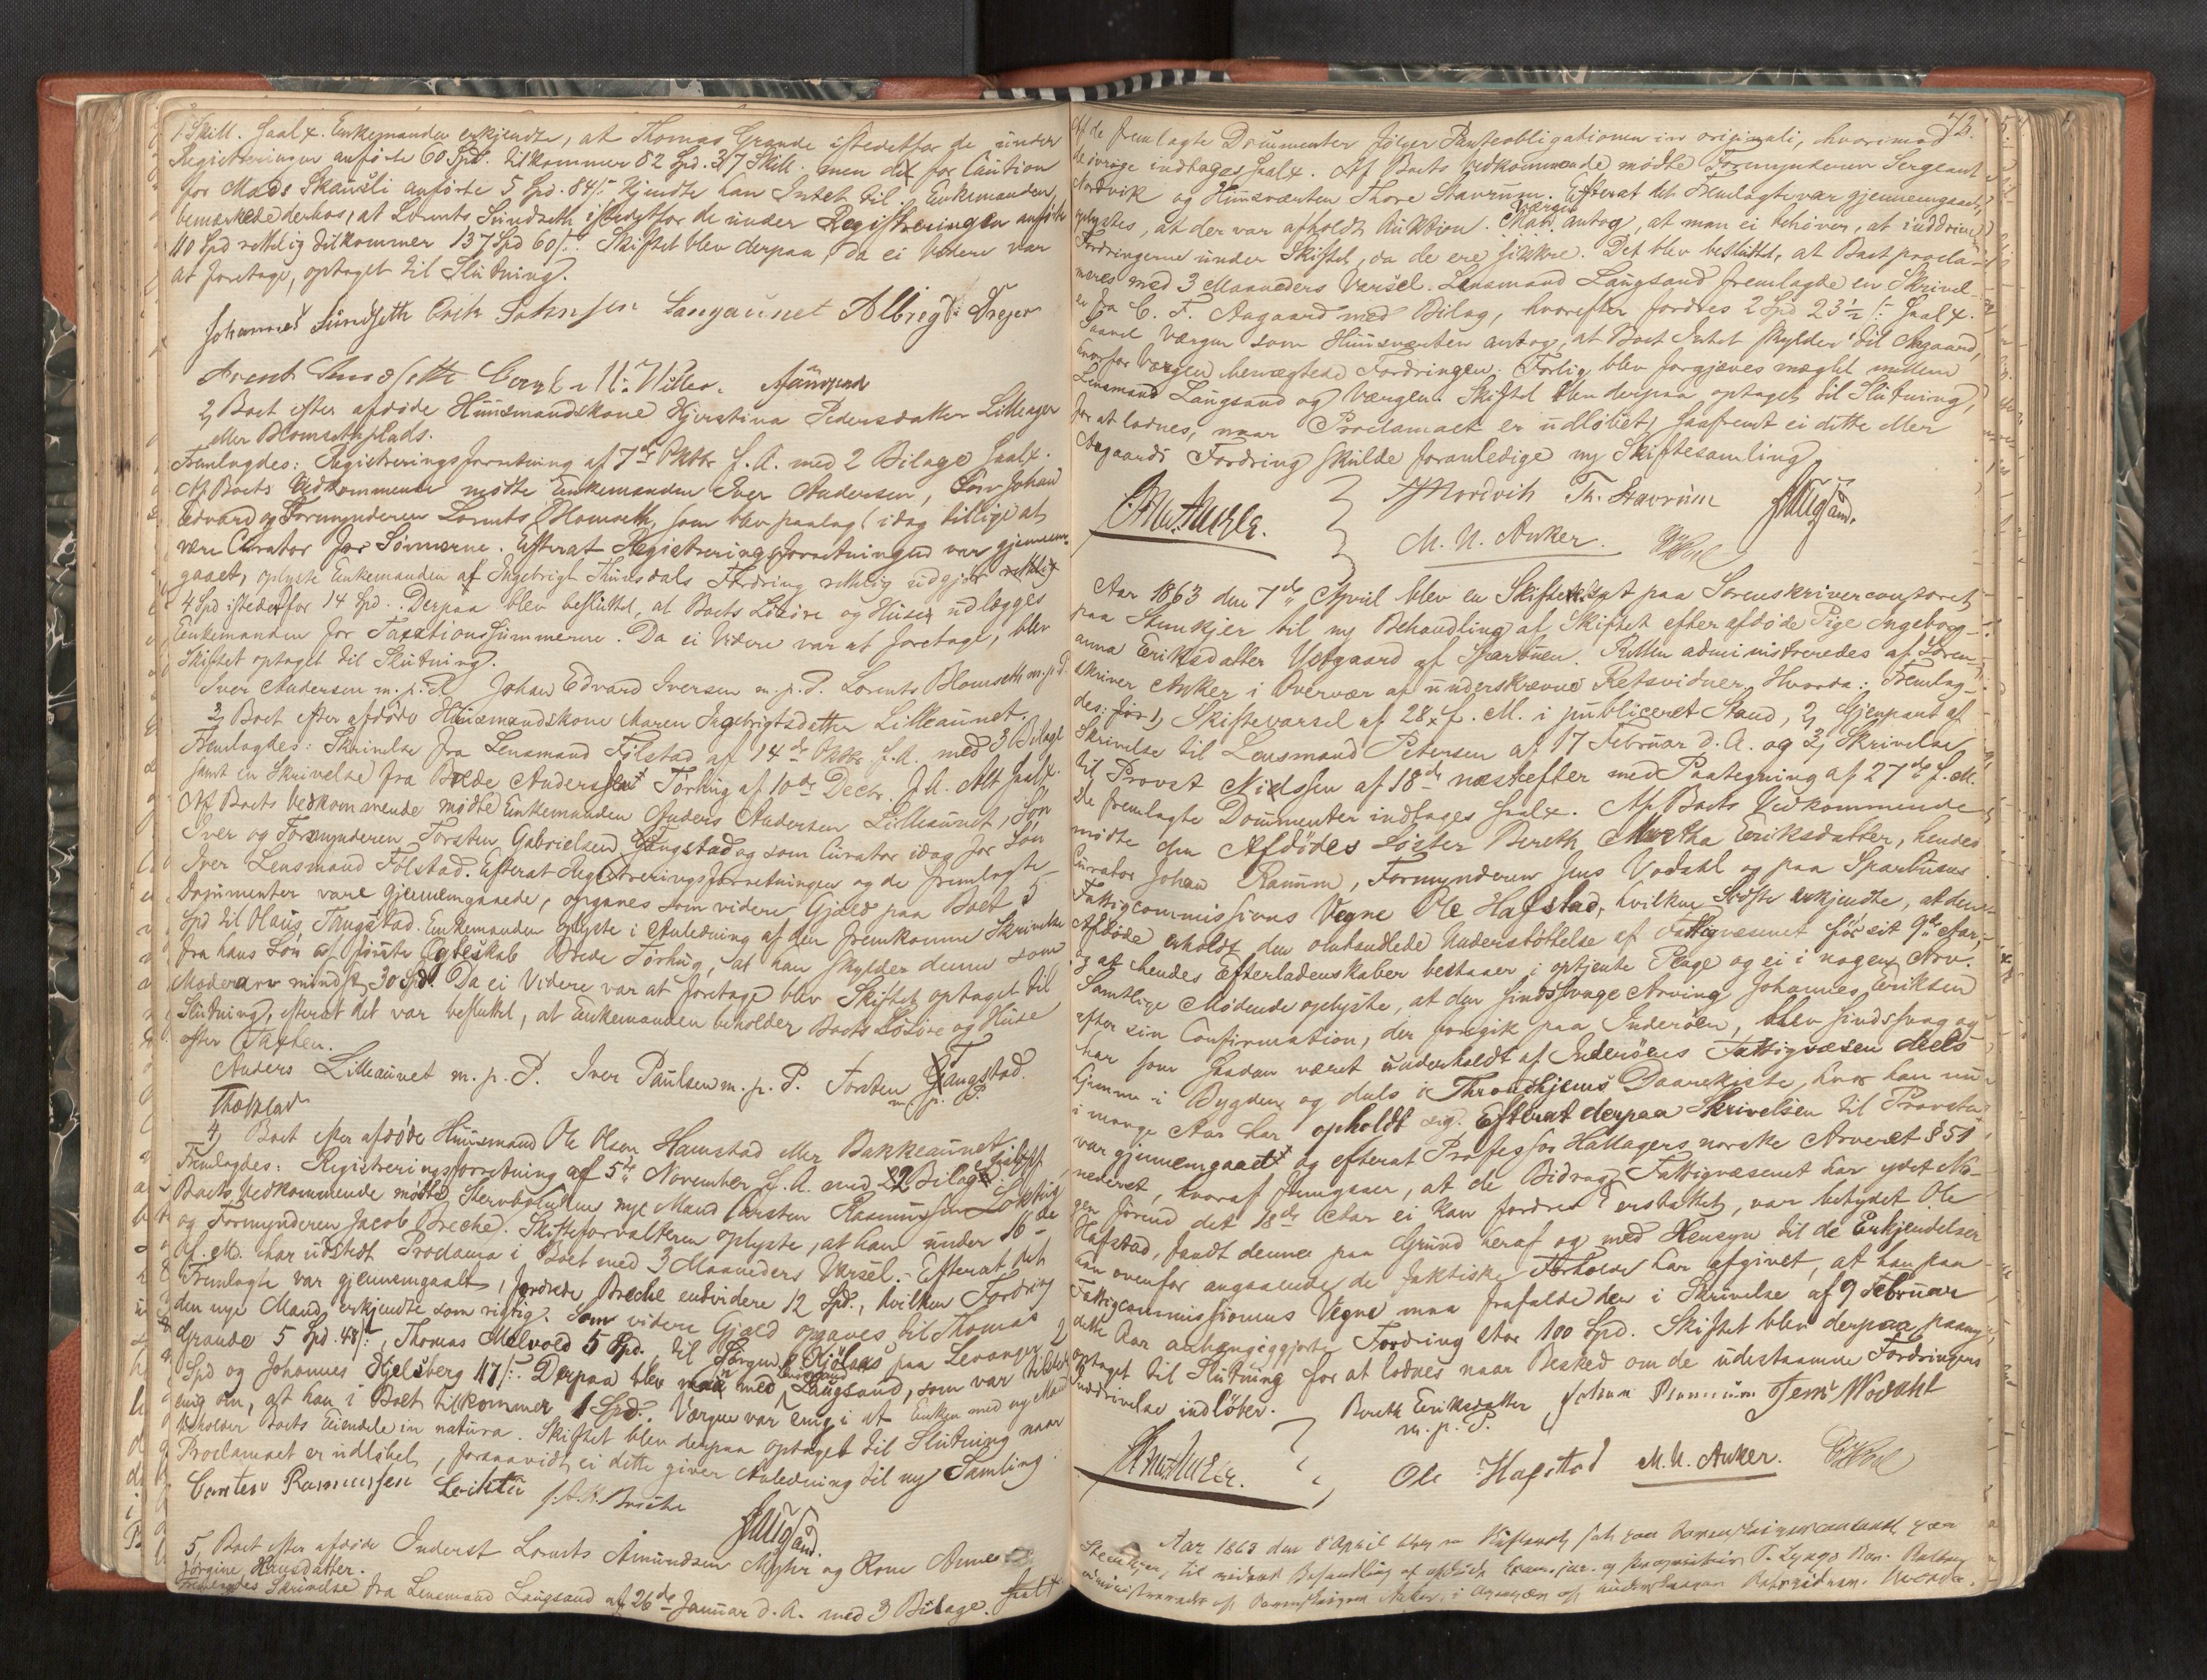 1 Skill. Saal. Enkemanden erkjendte, at Thomas Grande istedetfor de under
Registreringen anförte 60 Spd. tilkommer 82 Spd. 37 Skill. men det for Caution
for Mads Skausli anförte 5 Spd. 84 /: kjendte han Intet til. Enkemanden
bemærkede derhos, at Lornts Sundseth istedetfor de under Registreringen anförte
110 Spd rettelig tilkommer 137 Spd 60 /: Skiftet blev derpaa, da ei videre var
at foretage, optaget til Slutning.
Johannes Sundseth Johnsen Langaunet Albrigt Dreyer
Arent Sundseth
2, Boet efter afdöde Huusmandskone Kjerstina Pedersdatter Lilleager
eller Blomsethplads.
Fremlagdes: Registreringsforretning af 7de Oktbr f. A. med 2 Bilage Saal.
Af Boets Vedkommende mödte Enkemanden Iver Andersen, Sön Johan
Edvard og Formynderen Lornts Blomseth, som blev paalagt idag tillige at
være Curator for Sönnerne. Efterat Registreringsforretningen var gjennem-
gaaet, oplyste Enkemanden af Ingebrigt Thinsdals Fordring rettelig udgjör
4 Spd istedetfor 14 Spd. Derpaa blev besluttet, at Boets Lösöre og Huse udlægges
Enkemanden for Taxtionssummerne. Da ei Videre var at foretage, blev
Skiftet optaget til Slutning.
Iver Andersen m. p. P. Johan Edvard Iversen m. p. P. Lornts Blomseth m. p. P.
3, Boet efter afdöde Huusmandskone Maren Ingebrigtsdatter Lilleaunet.
Fremlagdes: Skrivelse fra Lensmand Fölstad af 14de Oktbr f. A. med 3 Bilage
samt en Skrivelse fra Brede Andersen Förhug af 10de Decbr. f. A. Alt Saal.
Af Boets Vedkommende mödte Enkemanden Anders Andersen Lilleaunet, Sön
Iver og Formynderen Torsten Gabrielsen Fangstad og som Curator idag for Sön
Iver Lensmand Fölstad. Efterat Registreringsforretningen og de fremlagte
Dokumenter vare gjennemgaaede, opgaves som videre Gjæld paa Boet 5
Spd til Olaus Fangstad. Enkemanden oplyste i Anledning af den fremkomne Skrivelse
fra hans Sön af förste Ægteskab Brede Förhug, at han skylder denne som
Moderarv mindst 30 Spd. Da ei Videre var at foretage blev Skiftet optaget til
Slutning, efterat det var besluttet, at Enkemanden beholder Boets Lösöre og Huse
efter Taxten.
Anders Lilleaunet m. p. P. Iver Paulsen m. p. P. Torsten Fangstad.
m. p. P.
4, Boet efter afdöde Huusmand Ole Olsen Hamstad eller Bakkeaunet.
Fremlagdes: Registreringsforretning af 5te November f. A. med 2 Bilage. Af
Boets Vedkommende mödte Stervboenkens nye Mand Carsten Rasmussen
og Formynderen Jacob Breche. Skifteforvalteren oplyste, at han under 16de
f. M. har udstedt Proclama i Boet med 3 Maaneders Varsel. Efterat det
Fremlagte var gjennemgaaet, fordrede Breche endvidere 12 Spd., hvilken Fordring
den nye Mand erkjendte som rigtig. Som videre Gjæld opgaves til Thomas
Grande 5 Spd. 48 /:, Thomas Melvold 5 Spd. til Jörgen Hjölaas paa Levanger 2
Spd og Johannes Hjelsberg 117 /: Derpaa blev man med Lensmand Laugsand, som var tilstede
enig om, at han i Boet tilkommer 1 Spd. Værgen var enig i at Enken med ny Mand
beholder Boets Eiendele in natura. Skiftet blev derpaa optaget til Slutning naar
Proclamaet er udlöbet, forsaavidt ei dette giver Anledning til ny Samling.
Carsten Rasmussen J. A. Breche
5, Boet efter afdöde Inderst Lornts Amundsen Myhr og Kone Anne
Jörgine Hansdatter.
Fremlagdes Skrivelse fra Lensmand Laugsand af 26de Januar d. A. med 3 Bilage. Saal
72.
Af de fremlagte Documenter fölger Panteobligationen in originali, hvorimod
de övrige indtages saal. Af Boets Vedkommende mödte Formynderen Sergeant
Nordvik og Huusværten Thore Stavrum. Efterat det Fremlagte var gjennemgaaet,
oplystes, at der var afholdt Auktion. Værgen antog, at man ei behöver, at inddrive
Fordringerne under Skiftet, da de ere sikkre. Det blev besluttet, at Boet procla-
meres med 3 Maaneders Varsel. Lensmand Laugsand fremlagde en Skrivel-
se fra C. F. Aagaard med Bilag, hvorefter fordres 2 Spd 23½ /: Saal.
Saavel Værgen som Huusværten antog, at Boet Intet skylder til Aagaard,
hvorfor Værgen benægtede Fordringen. Forlig blev forgjæves mæglet mellem
Lensmand Laugsand og Værgen. Skiftet blev derpaa optaget til Slutning,
for at lodnes, naar Proclamaet er udlöbet, saafremt ei dette eller
Aagaards Fordring skulde foranledige ny Skiftesamling.
Nordvik Th. Stavrum
M. U. Anker.
Aar 1863 den 7de April blev en Skifteret sat paa Sorenskrivercontoret
paa Stenkjer til ny Behandling af Skiftet efter afdöde Pige Ingeborg-
anna Eriksdatter Vetgaard af Sparbuen. Retten administreredes af Soren-
skriver Anker i Overvær af underskrevne Retsvidner. Hvorda: Fremlag-
des: 1, Skiftevarsel af 28 f. M. i publiceret Stand, 2, Gjenpart af
Skrivelse til Lensmand Petersen af 17 Februar d. A. og 3, Skrivelse
til Provst Nielssen af 18de næstefter med Paategning af 27de f. M.
De fremlagte Dommenter indtages saal. Af Boets Vedkommende
mödte den Afdödes Söster Bereth Martha Eriksdatter, hendes
Curator Johan Ramm, Formynderen Jens Vodahl og paa Sparbuens
Fattigcommissions Vegne Ole Hafstad, hvilken Sidste erkjendte, at den
Afdöde erholdt den omhandlede Understöttelse af Fattigvæsenet för sit 9de Aar,
og at hendes Efterladenskaber bestaaer i optjente Penge og ei i nogen Arv.
Samtlige Mödende oplyste, at den sindssvage Arving Johannes Eriksen
efter sin Confirmation, der foregik paa Inderöen, blev sindssvag og
har som saadan været underholdt af Inderöens Fattigvæsen deels
hjemme i Bygden og dels i Throndhjems Daarekiste, hvor han nu
i mange Aar har opholdt sig. Efterat derpaa Skrivelsen til Provsten
var gjennemgaaet og efterat Professor Hallagers norske Arveret § 51
nederst, hvoraf fremgaaer, at de Bidrag Fattigvæsenet har ydet No-
gen förend det 18de Aar ei kan fordres erstattet, var betydet Ole
Hafstad, fandt denne paa Grund heraf og med Hensyn til de Erkjendelser
han ovenfor angaaende de faktiske Forholde har afgivet, at han paa
Fattigcommissionens Vegne maa frafalde den i Skrivelse af 9 Februar
dette Aar anhængiggjorte Fordring stor 100 Spd. Skiftet blev derpaa paany
optaget til Slutning for at lodnes naar Besked om de udestaaende Fordringers
Inddrivelse indlöber.
Bereth Eriksdatter Johan Ramm Jens Wodahl
m. p. P.
Ole Hafstad M. U. Anker.
Aar 1863 den 8 April blev en Skifteret sat paa Sorenskrivercontoret paa
Stenkjer, til videre Behandling af afdöde Exam. jur. og
administreredes af Sorenskriver Anker, i Overvær af underskrevne Retsvidner. Hvorda.